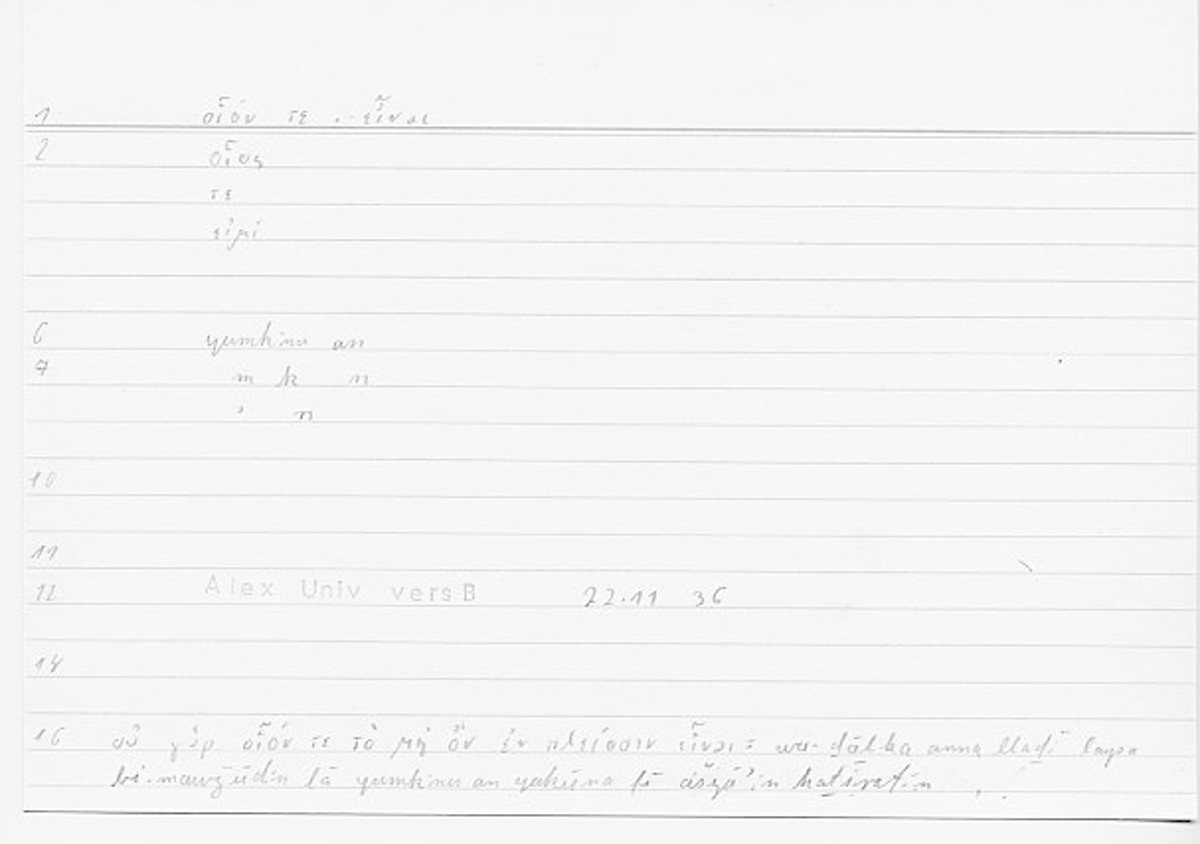 1 οἷόν τε .. εἶναι
2 οἷος
τε
εἰμί
6 yumkinu an
7 m k n
ʾ n
10
11
12 Alex Univ vers B 22.11 36
14
16 οὐ γὰρ οἷόν τε τὸ μὴ ὂν ἐν πλείοσιν εἶναι = wa-ḏālika anna llaḏī laysa
bi-mawǧūdin lā yumkinu an yakūna fī ašyāʾin kaṯīratin